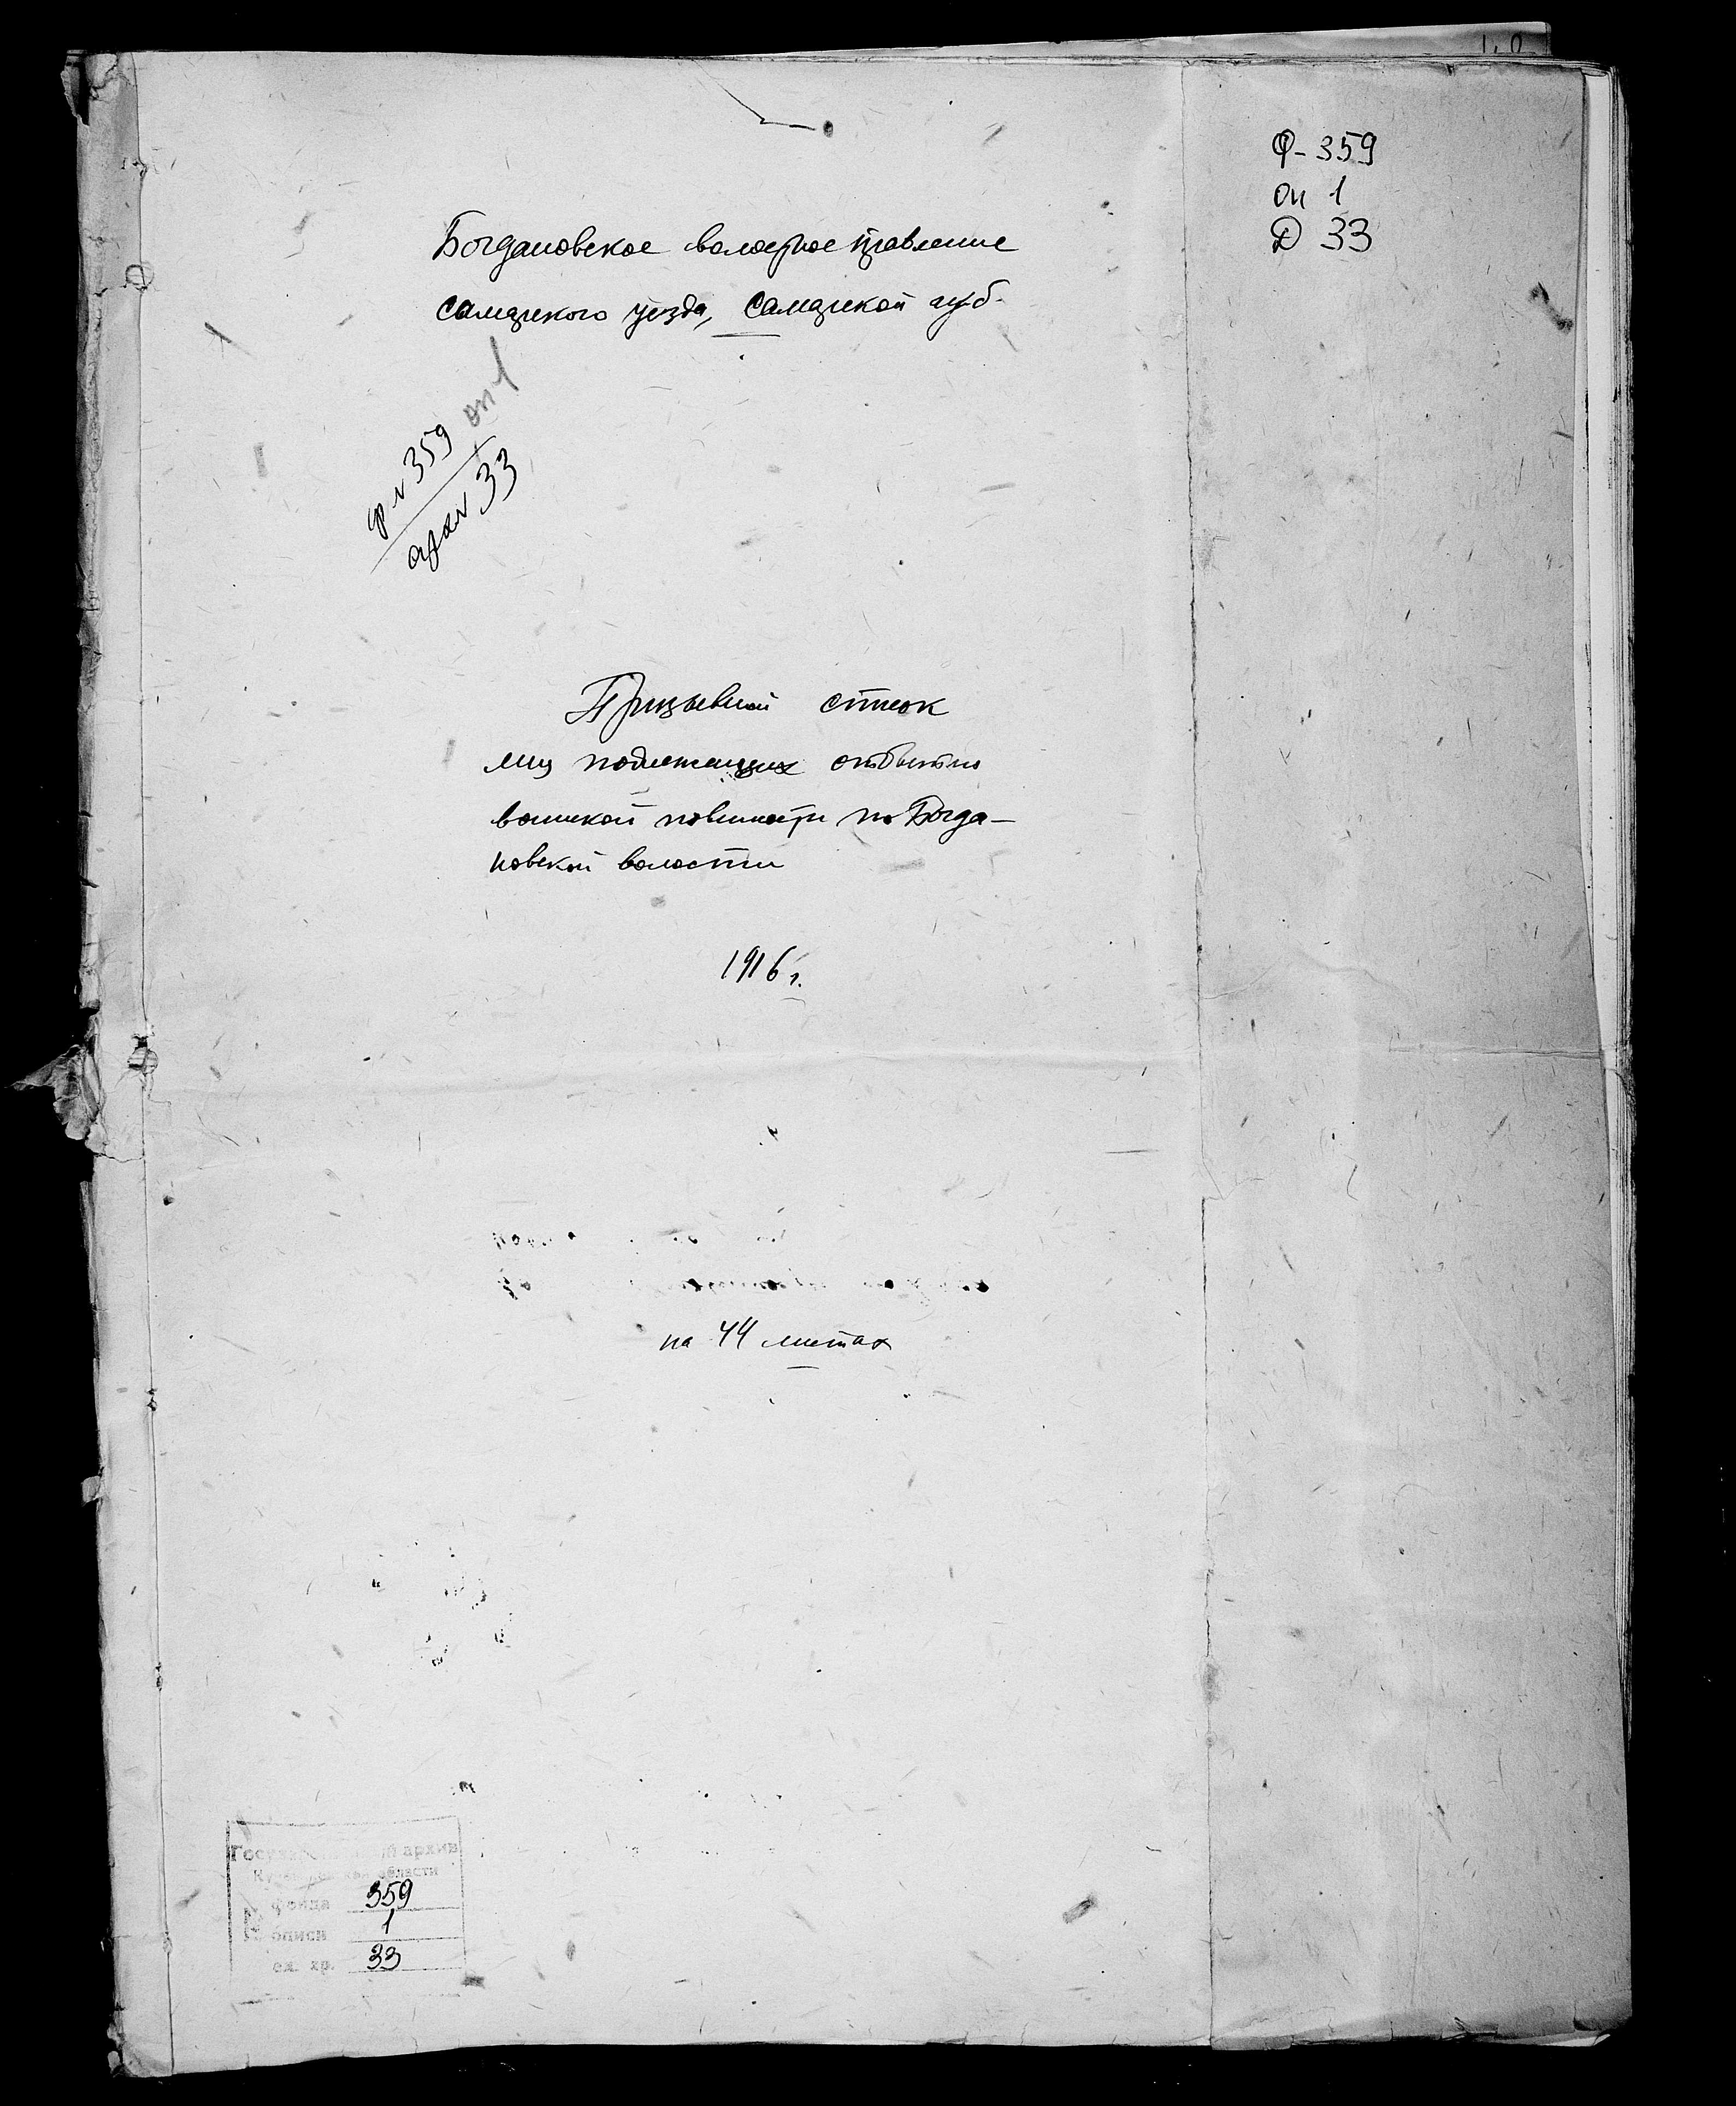 Ф-359
оп 1
Д 33
Богдановское волостное правление
Самарского уезда, Самарской губ.
ф № 359 оп 1
арх № 33
Призывной список
лиц подлежащих отбытию
воинской повинности по Богда-
новской волости
1916 г.
на 44 листах
Государственный архив
Куйбышевской области
№ фонда 359
№ описи 1
№ ед. хр. 33